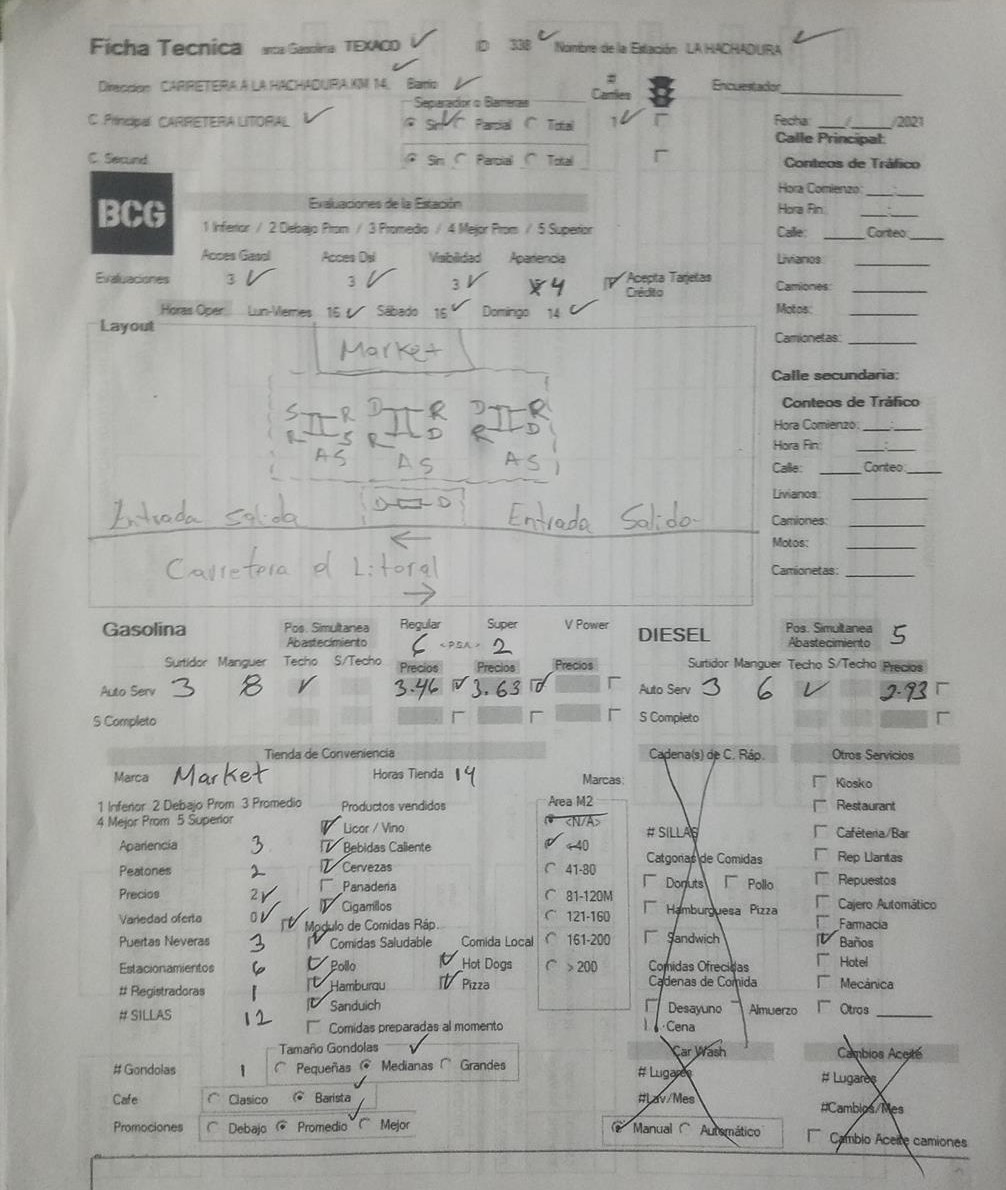 Ficha Tecnica arca Gasolina TEXACO ID 338 Nombre de la Estación LA HACHADURA
Direccion CARRETERA A LA HACHADURA KM 14, Barrio # Carriles Encuestador
Separador o Barreras
C. Principal CARRETERA LITORAL Sin Parcial Total 1 Fecha: / /2021
Calle Principal:
C. Secund. Sin Parcial Total Conteos de Tráfico
BCG
Hora Comienzo: :
Evaluaciones de la Estación
Hora Fin: :
1 Inferior / 2 Debajo Prom / 3 Promedio / 4 Mejor Prom / 5 Superior
Calle: Conteo:
Acces Gasol Acces Dsl Visibilidad Apariencia
Livianos:
Evaluaciones 3 3 3 4 Acepta Tarjetas Crédito
Camiones:
Horas Oper: Lun-Viernes 16 Sábado 16 Domingo 14
Motos:
Layout
Camionetas:
Market
Calle secundaria:
Conteos de Tráfico
S R D R D R
R S R D R D
Hora Comienzo: :
Hora Fin: :
AS AS AS
Calle: Conteo:
D D
Livianos:
Entrada Salida Entrada Salida
Camiones:
Motos:
Carretera el Litoral
Camionetas:
Gasolina Pos. Simultanea Abastecimiento Regular 6 <PSA> Super 2 V Power DIESEL Pos. Simultanea Abastecimiento 5
Surtidor Manguer Techo S/Techo Precios Precios Precios Surtidor Manguer Techo S/Techo Precios
Auto Serv 3 8 3.46 3.63 Auto Serv 3 6 2.93
S Completo S Completo
Tienda de Conveniencia Cadena(s) de C. Ráp. Otros Servicios
Marca Market Horas Tienda 14 Marcas:
Kiosko
1 Inferior 2 Debajo Prom 3 Promedio
4 Mejor Prom 5 Superior
Productos vendidos
Area M2
Restaurant
Licor / Vino <N/A> # SILLAS Caféteria/Bar
Apariencia 3 Bebidas Caliente <40
Catgorias de Comidas Rep Llantas
Peatones 2 Cervezas 41-80
Panaderia Donuts Pollo Repuestos
Precios 2 Cigarrillos 81-120M Hamburguesa Pizza Cajero Automático
Variedad oferta 0 Modulo de Comidas Ráp. 121-160 Farmacia
Puertas Neveras 3 Comidas Saludable Comida Local 161-200 Sandwich Baños
Estacionamientos 6 Pollo Hot Dogs > 200 Comidas Ofrecidas Cadenas de Comida Hotel
# Registradoras 1 Hamburqu Pizza Mecánica
# SILLAS 12 Sanduich Desayuno Almuerzo Otros
Comidas preparadas al momento Cena
Tamaño Gondolas Car Wash Cambios Aceité
# Gondolas 1 Pequeñas Medianas Grandes # Lugares # Lugares
Cafe Clasico Barista #Lav/Mes #Cambios/Mes
Promociones Debajo Promedio Mejor Manual Automático Cambio Aceite camiones